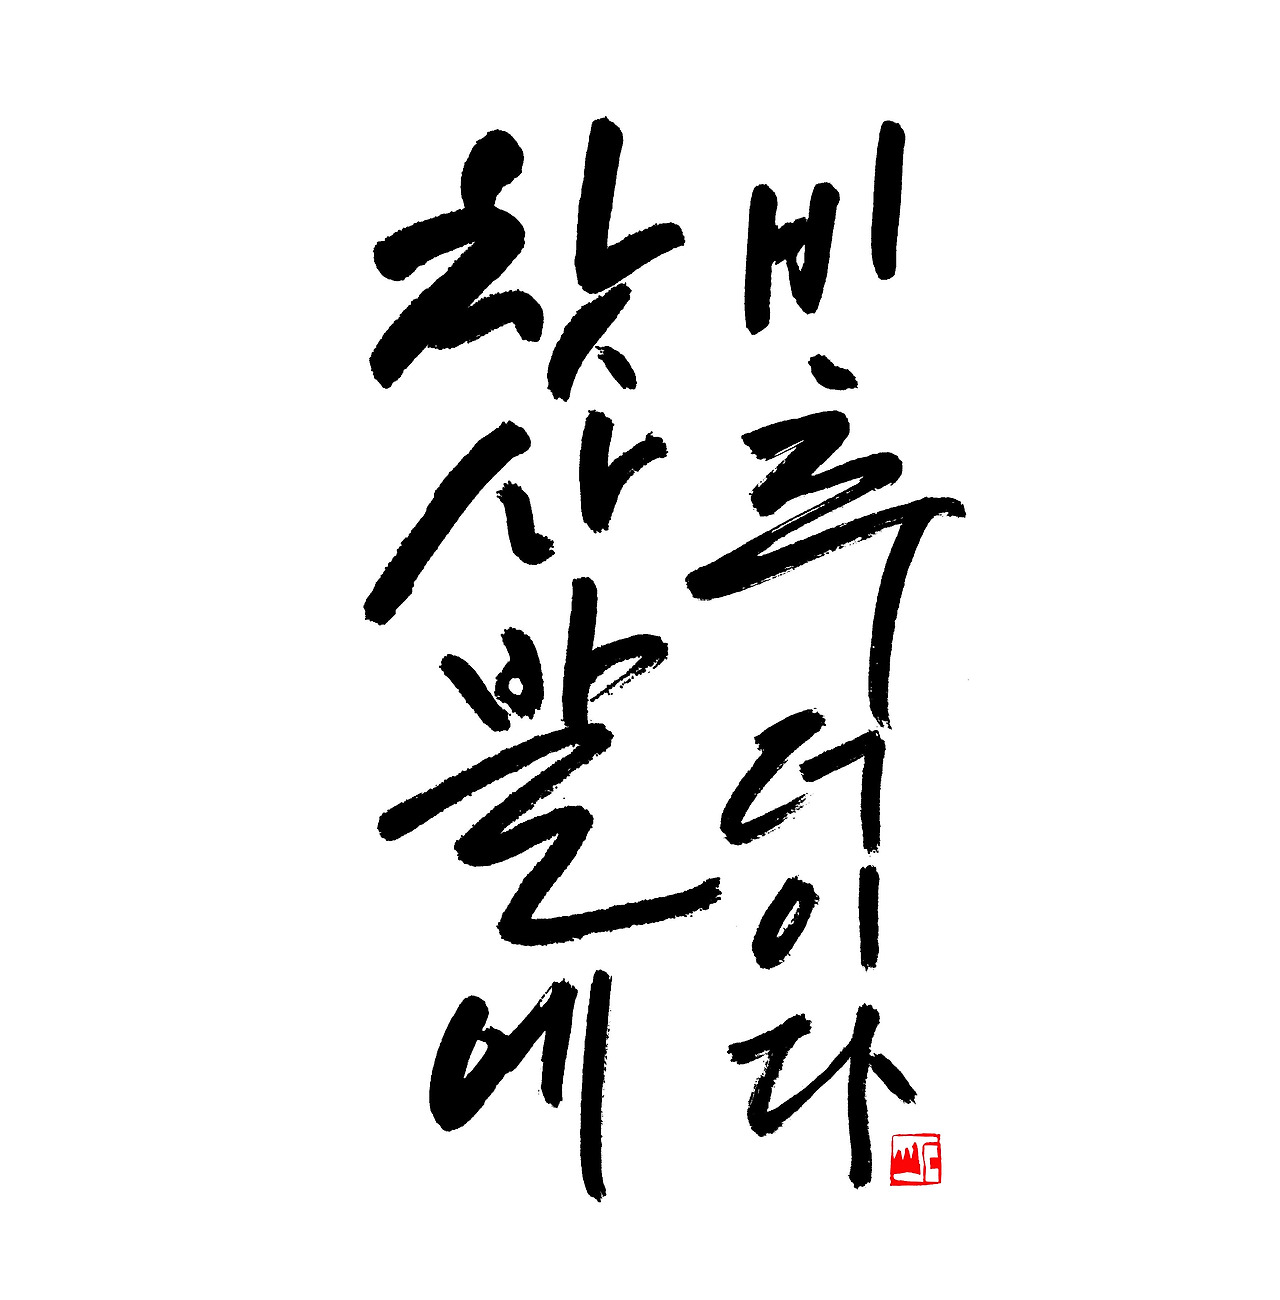 찻사발에
비추더이다